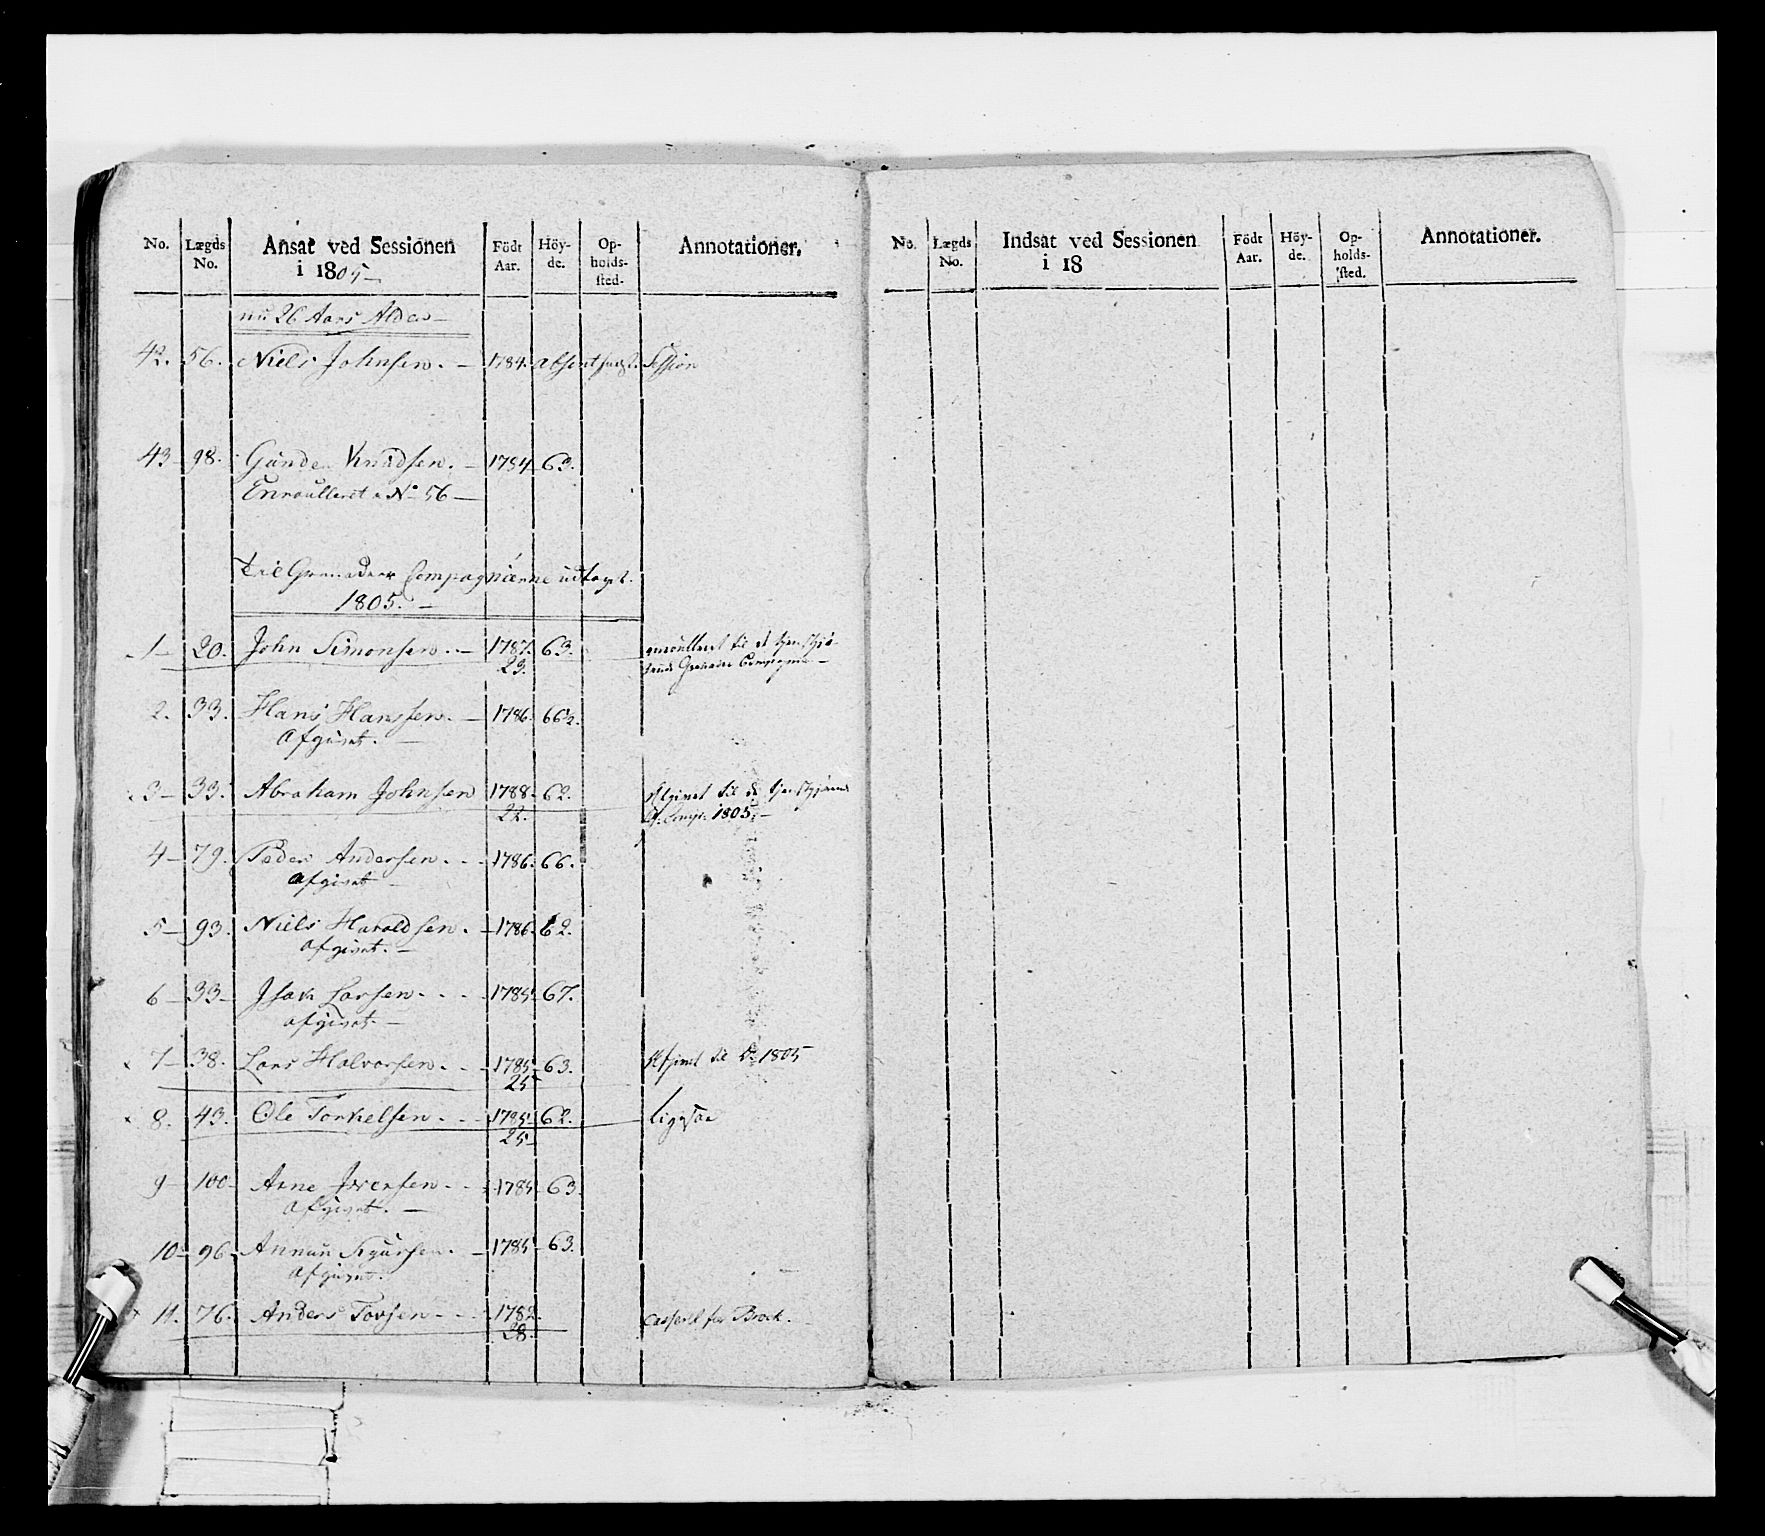 No. Lægds No. Ansat ved Sessionen i 1805 Födt Aar. Höyde. Opholdssted. Annotationer.
nu 26 Aars Alder
42. 56. Niels Johnsen. 1784. absent Session
43 98. Gunder Knudsen. 1784 63.
Enroulleret No 56
til Grenadeer Compagnierne udtaget
1805.
1 20. John Simonsen. 1787. 63. enroulleret til
23. Compagnie
2. 33. Hans Hanssen. 1786. 66½.
Afgivet.
3 33. Abraham Johnsen 1788. 62. Afgivet til
22. Comp. 1805.
4 79. Peder Andersen. 1786. 66.
afgivet
5 93. Niels Haraldsen. 1786. 62.
afgivet.
6 33 Isak Larsen. 1785 67.
afgivet.
7 38. Lars Halvorsen. 1785 63. Afgivet til Do 1805
25
8. 43. Ole Torkelsen. 1785 62. ligesaa
25
9 100 Arne Iversen. 1785 63
afgivet.
10 96. Sigursen. 1785 63.
afgivet.
11. 76. Anders Torsen 1782. Casseret for Brock.
28.
No. Lægds No. Indsat ved Sessionen i 18 Födt Aar. Höyde. Opholdssted. Annotationer.